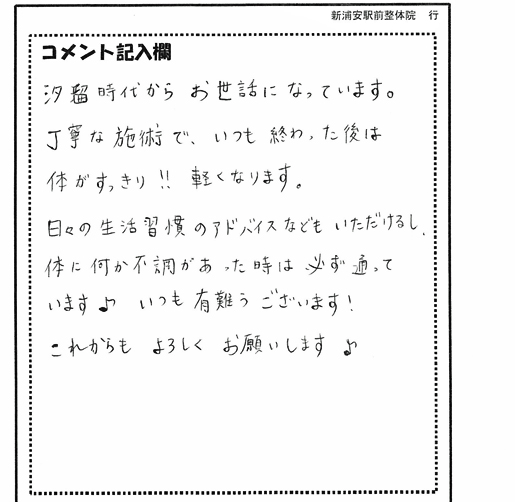 新浦安駅前整体院 行
コメント記入欄
汐留時代から お世話になっています。
丁寧な施術で、いつも 終わった後は
体がすっきり!! 軽くなります。
日々の生活習慣のアドバイスなども いただけるし、
体に何か不調があった時は 必ず通って
います♪ いつも有難うございます!
これからも よろしく お願いします ♪